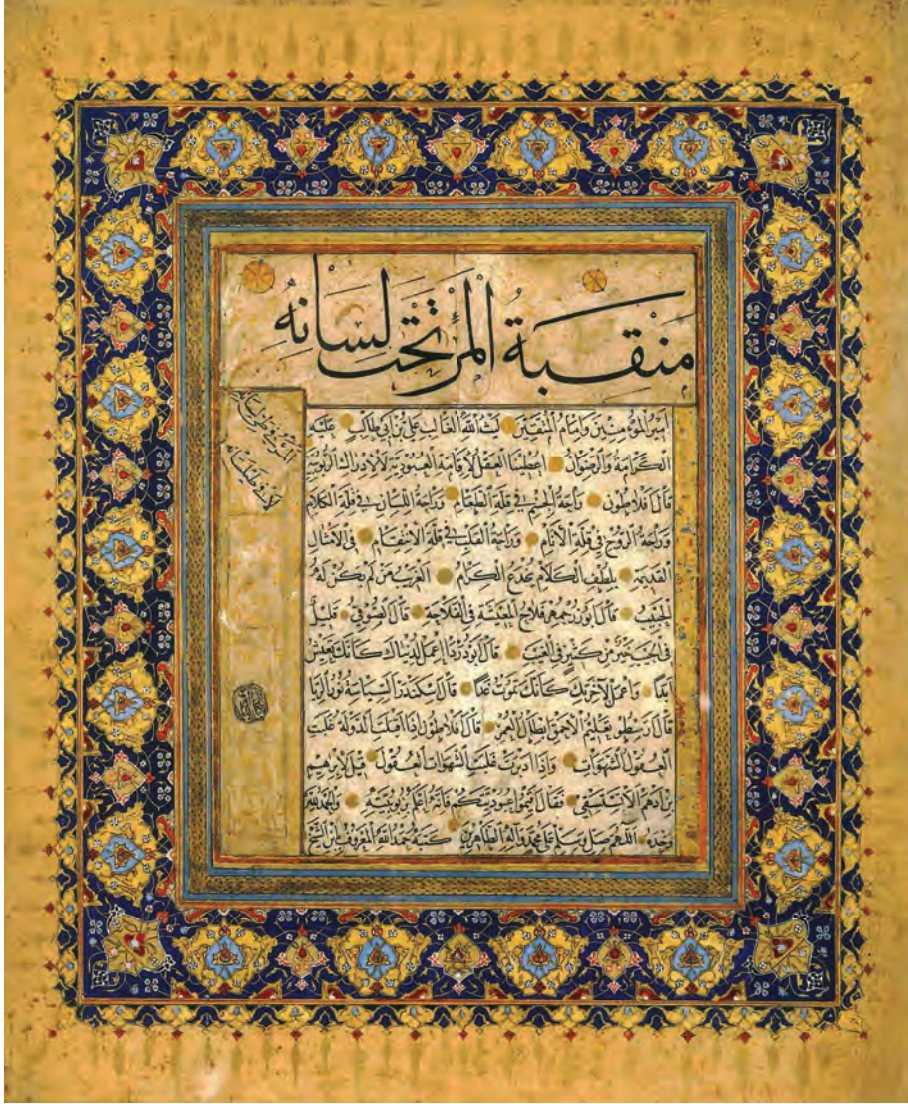 منقبة المرء تحت لسانه
أمير المؤمنين وإمام المتقين ليث الله الغالب علي بن أبي طالب عليه
الكرامة والرضوان أعطينا العقل لإقامة العبودية لا لإدراك الربوبية
قال افلاطون راحة الجسم في قلة الطعام وراحة اللسان في قلة الكلام
وراحة الروح في قلة الآثام وراحة القلب في قلة الاهتمام في الأمثال
القديمة بلطف الكلام تخدع الكرام الغريب من لم يكن له
الحبيب قال ابوزرجمهر فلاح المعيشة في الفلاحة قال الصوفي قليل
في الجيب خير من كثير في الغيب قال ابوذر اعمل لدنياك كأنك تعيش
أبدا واعمل لآخرتك كأنك تموت غدا قال اسكندر السياسة
قال تعليم الأحمق العمر قال افلاطون إذا أقبلت الدولة غلبت
العقول الشهوات وإذا أدبرت غلبت الشهوات العقول قيل لإبرهيم
بن أدهم ألا تستسقي فقال قيموا عبوديتكم فإنه أعلم والحمد لله
وحده اللهم صل وسلم على محمد وآله الطاهرين كتبه حمد الله المعروف بابن الشيخ